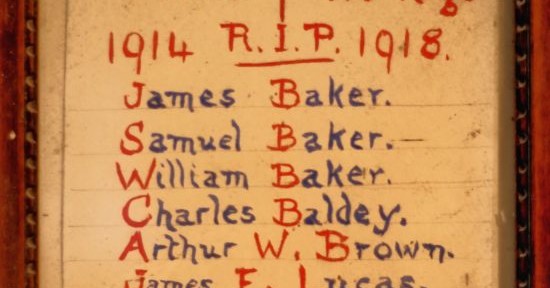 1914 R.I.P. 1918.
James Baker.
Samuel Baker.
William Baker.
Charles Baldey.
Arthur W. Brown.
James E. Lucas.